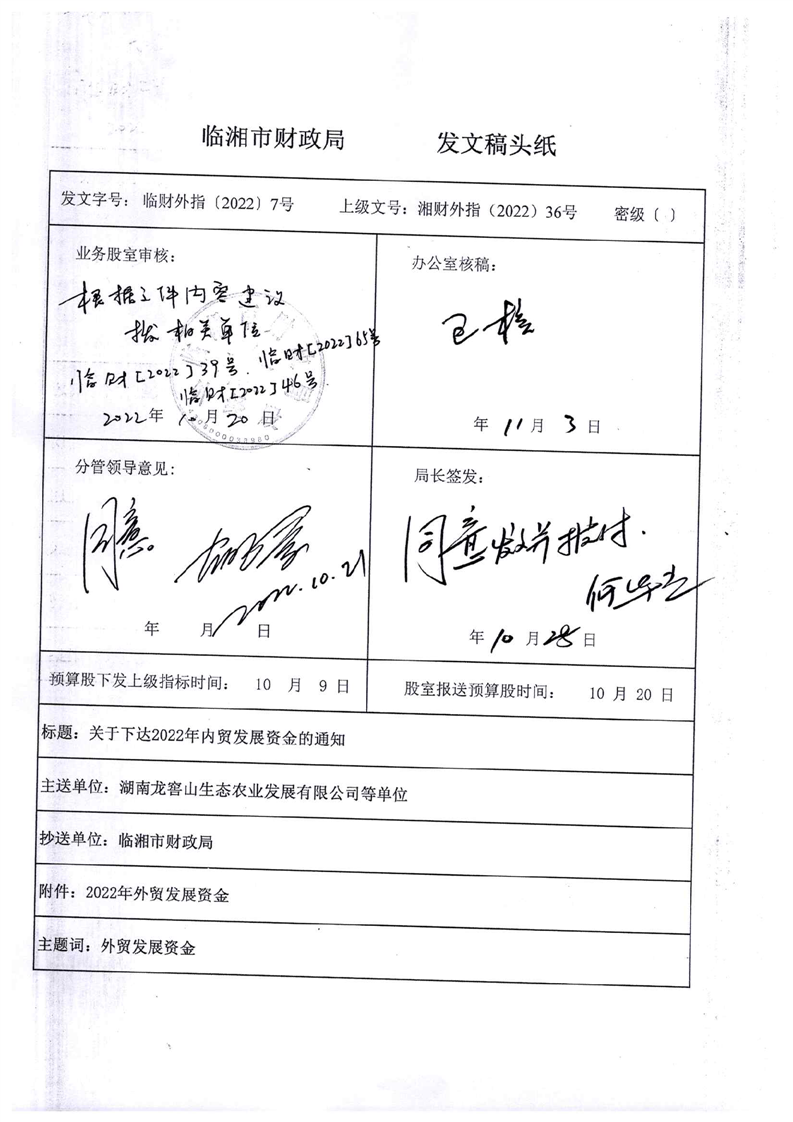 临湘市财政局 发文稿头纸
发文字号：临财外指〔2022〕7号 上级文号：湘财外指（2022）36号 密级（ ）
业务股室审核：
根据文件内容建议
拨相关单位
临财[2022]39号、临财[2022]65号
临财[2022]46号
2022年 10月 20日
办公室核稿：
已核
年 11月 3日
分管领导意见：
同意。
2022.10.21
年 月 日
局长签发：
同意发并拨付.
年 10月 28日
预算股下发上级指标时间： 10 月 9 日
股室报送预算股时间： 10 月 20 日
标题：关于下达2022年内贸发展资金的通知
主送单位：湖南龙窖山生态农业发展有限公司等单位
抄送单位：临湘市财政局
附件：2022年外贸发展资金
主题词：外贸发展资金